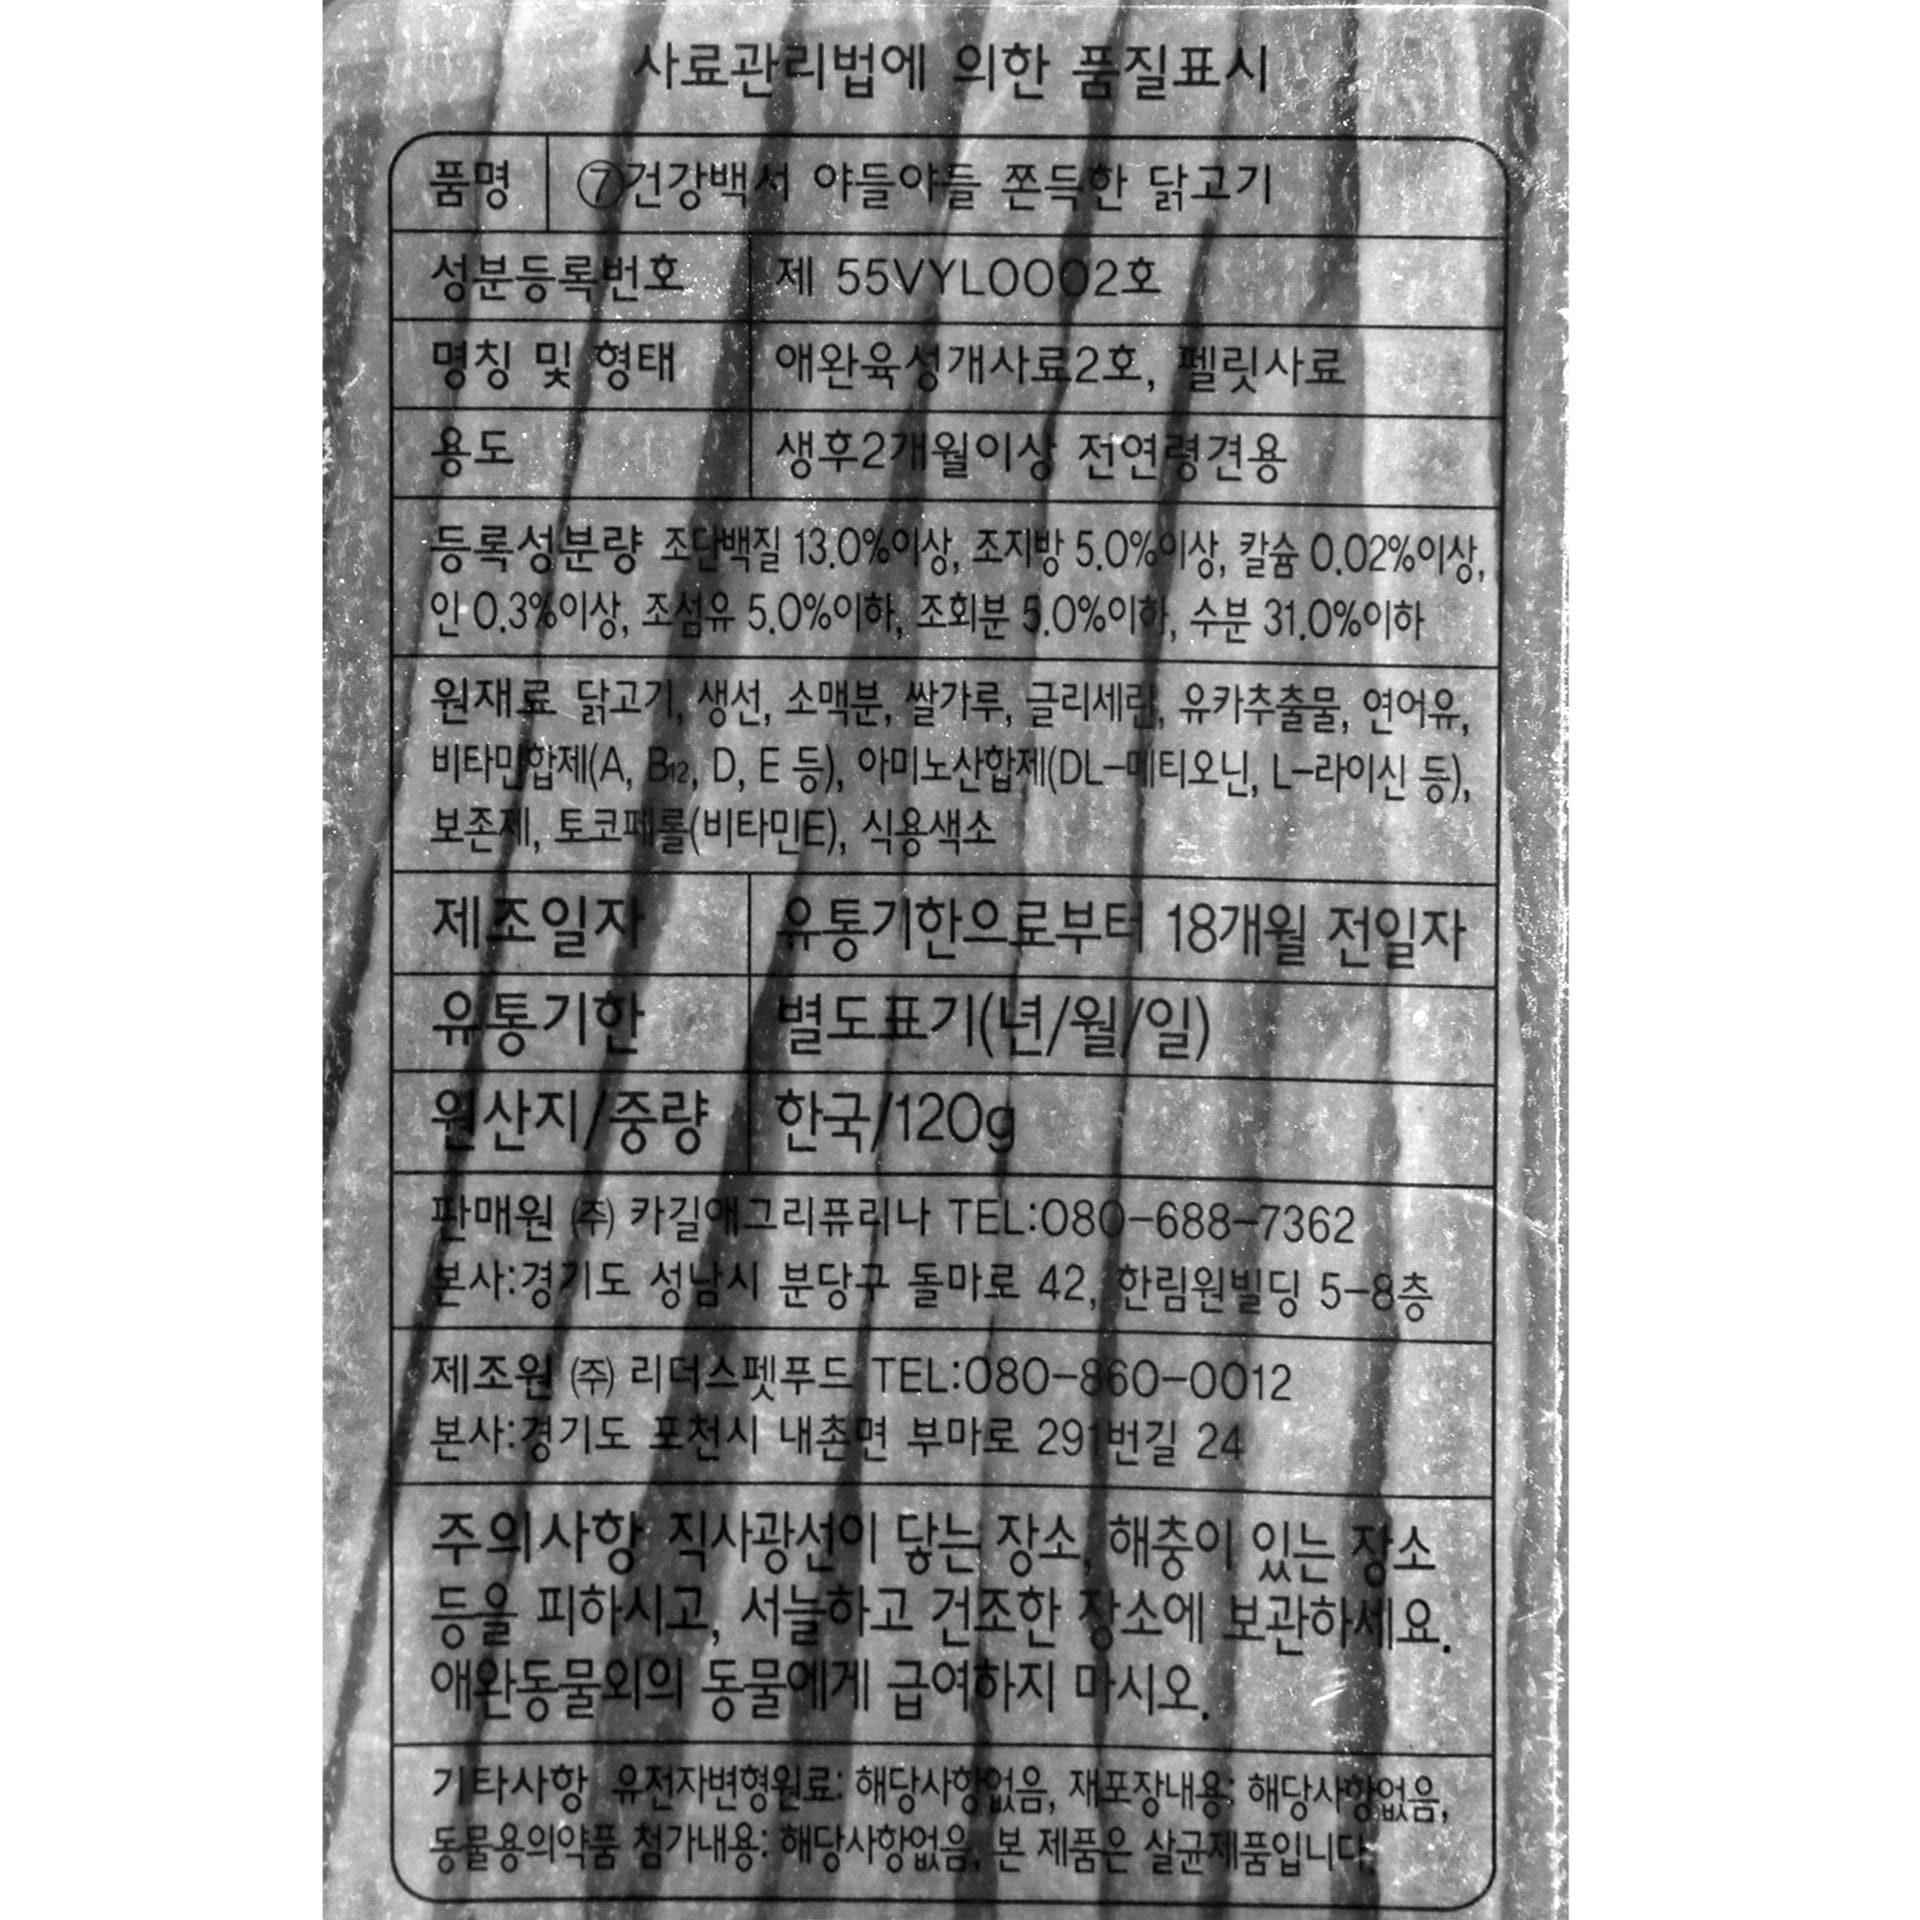 사료관리법에 의한 품질표시
품명 ⑦건강백서 야들야들 쫀득한 닭고기
성분등록번호 제 55VYL0002호
명칭 및 형태 애완육성개사료2호, 펠릿사료
용도 생후2개월이상 전연령견용
등록성분량 조단백질 13.0%이상, 조지방 5.0%이상, 칼슘 0.02%이상,
인 0.3%이상, 조섬유 5.0%이하, 조회분 5.0%이하, 수분 31.0%이하
원재료 닭고기, 생선, 소맥분, 쌀가루, 글리세린, 유카추출물, 연어유,
비타민합제(A, B12, D, E 등), 아미노산합제(DL-메티오닌, L-라이신 등),
보존제, 토코페롤(비타민E), 식용색소
제조일자 유통기한으로부터 18개월 전일자
유통기한 별도표기(년/월/일)
원산지/중량 한국/120g
판매원 ㈜ 카길애그리퓨리나 TEL:080-688-7362
본사:경기도 성남시 분당구 돌마로 42, 한림원빌딩 5-8층
제조원 ㈜ 리더스펫푸드 TEL:080-860-0012
본사:경기도 포천시 내촌면 부마로 291번길 24
주의사항 직사광선이 닿는 장소, 해충이 있는 장소
등을 피하시고, 서늘하고 건조한 장소에 보관하세요.
애완동물외의 동물에게 급여하지 마시오.
기타사항 유전자변형원료: 해당사항없음, 재포장내용: 해당사항없음,
동물용의약품 첨가내용: 해당사항없음, 본 제품은 살균제품입니다.